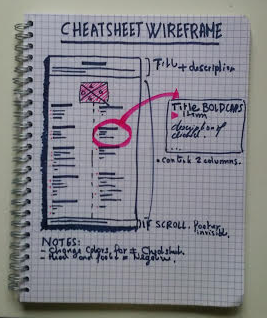 CHEATSHEET WIREFRAME
Title + description
Title BOLD CAPS
Item
description of
...
• content 2 columns.
IF SCROLL. Footer
invisible.
NOTES:
- Change Colors for ≠ Cheatsheet
- Head and footer in